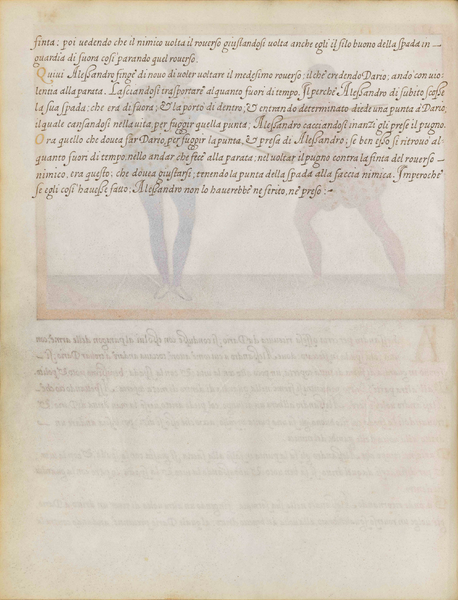 finta; poi uedendo che il nimico uolta il rouerso giustandosi uolta anche egli il filo buono della spada in
guardia di fuora cosi parando quel rouerso.
Quiui Alessandro finge di nouo di uoler uoltare il medesimo rouerso; il che credendo Dario; andò con uio
lentia alla parata. Lasciandosi trasportare alquanto fuori di tempo. Il perche Alessandro di subito
la sua spada; che era di fuora; & la portò di dentro; & entrando determinato diede una punta à Dario;
il quale cansandosi nella uita, per fuggir quella punta; Alessandro cacciandosi inanzi gli prese il pugno.
Ora quello che douea far Dario, per fuggir la punta, & presa di Alessandro; se ben esso si ritrouò al
quanto fuori di tempo, nello andar che fece alla parata; nel uoltar il pugno contra la finta del rouerso
nimico, era questo; che douea giustarsi; tenendo la punta della spada alla faccia nimica. Imperoche
se egli cosi hauesse fatto; Alessandro non lo hauerebbe ne ferito, ne preso: